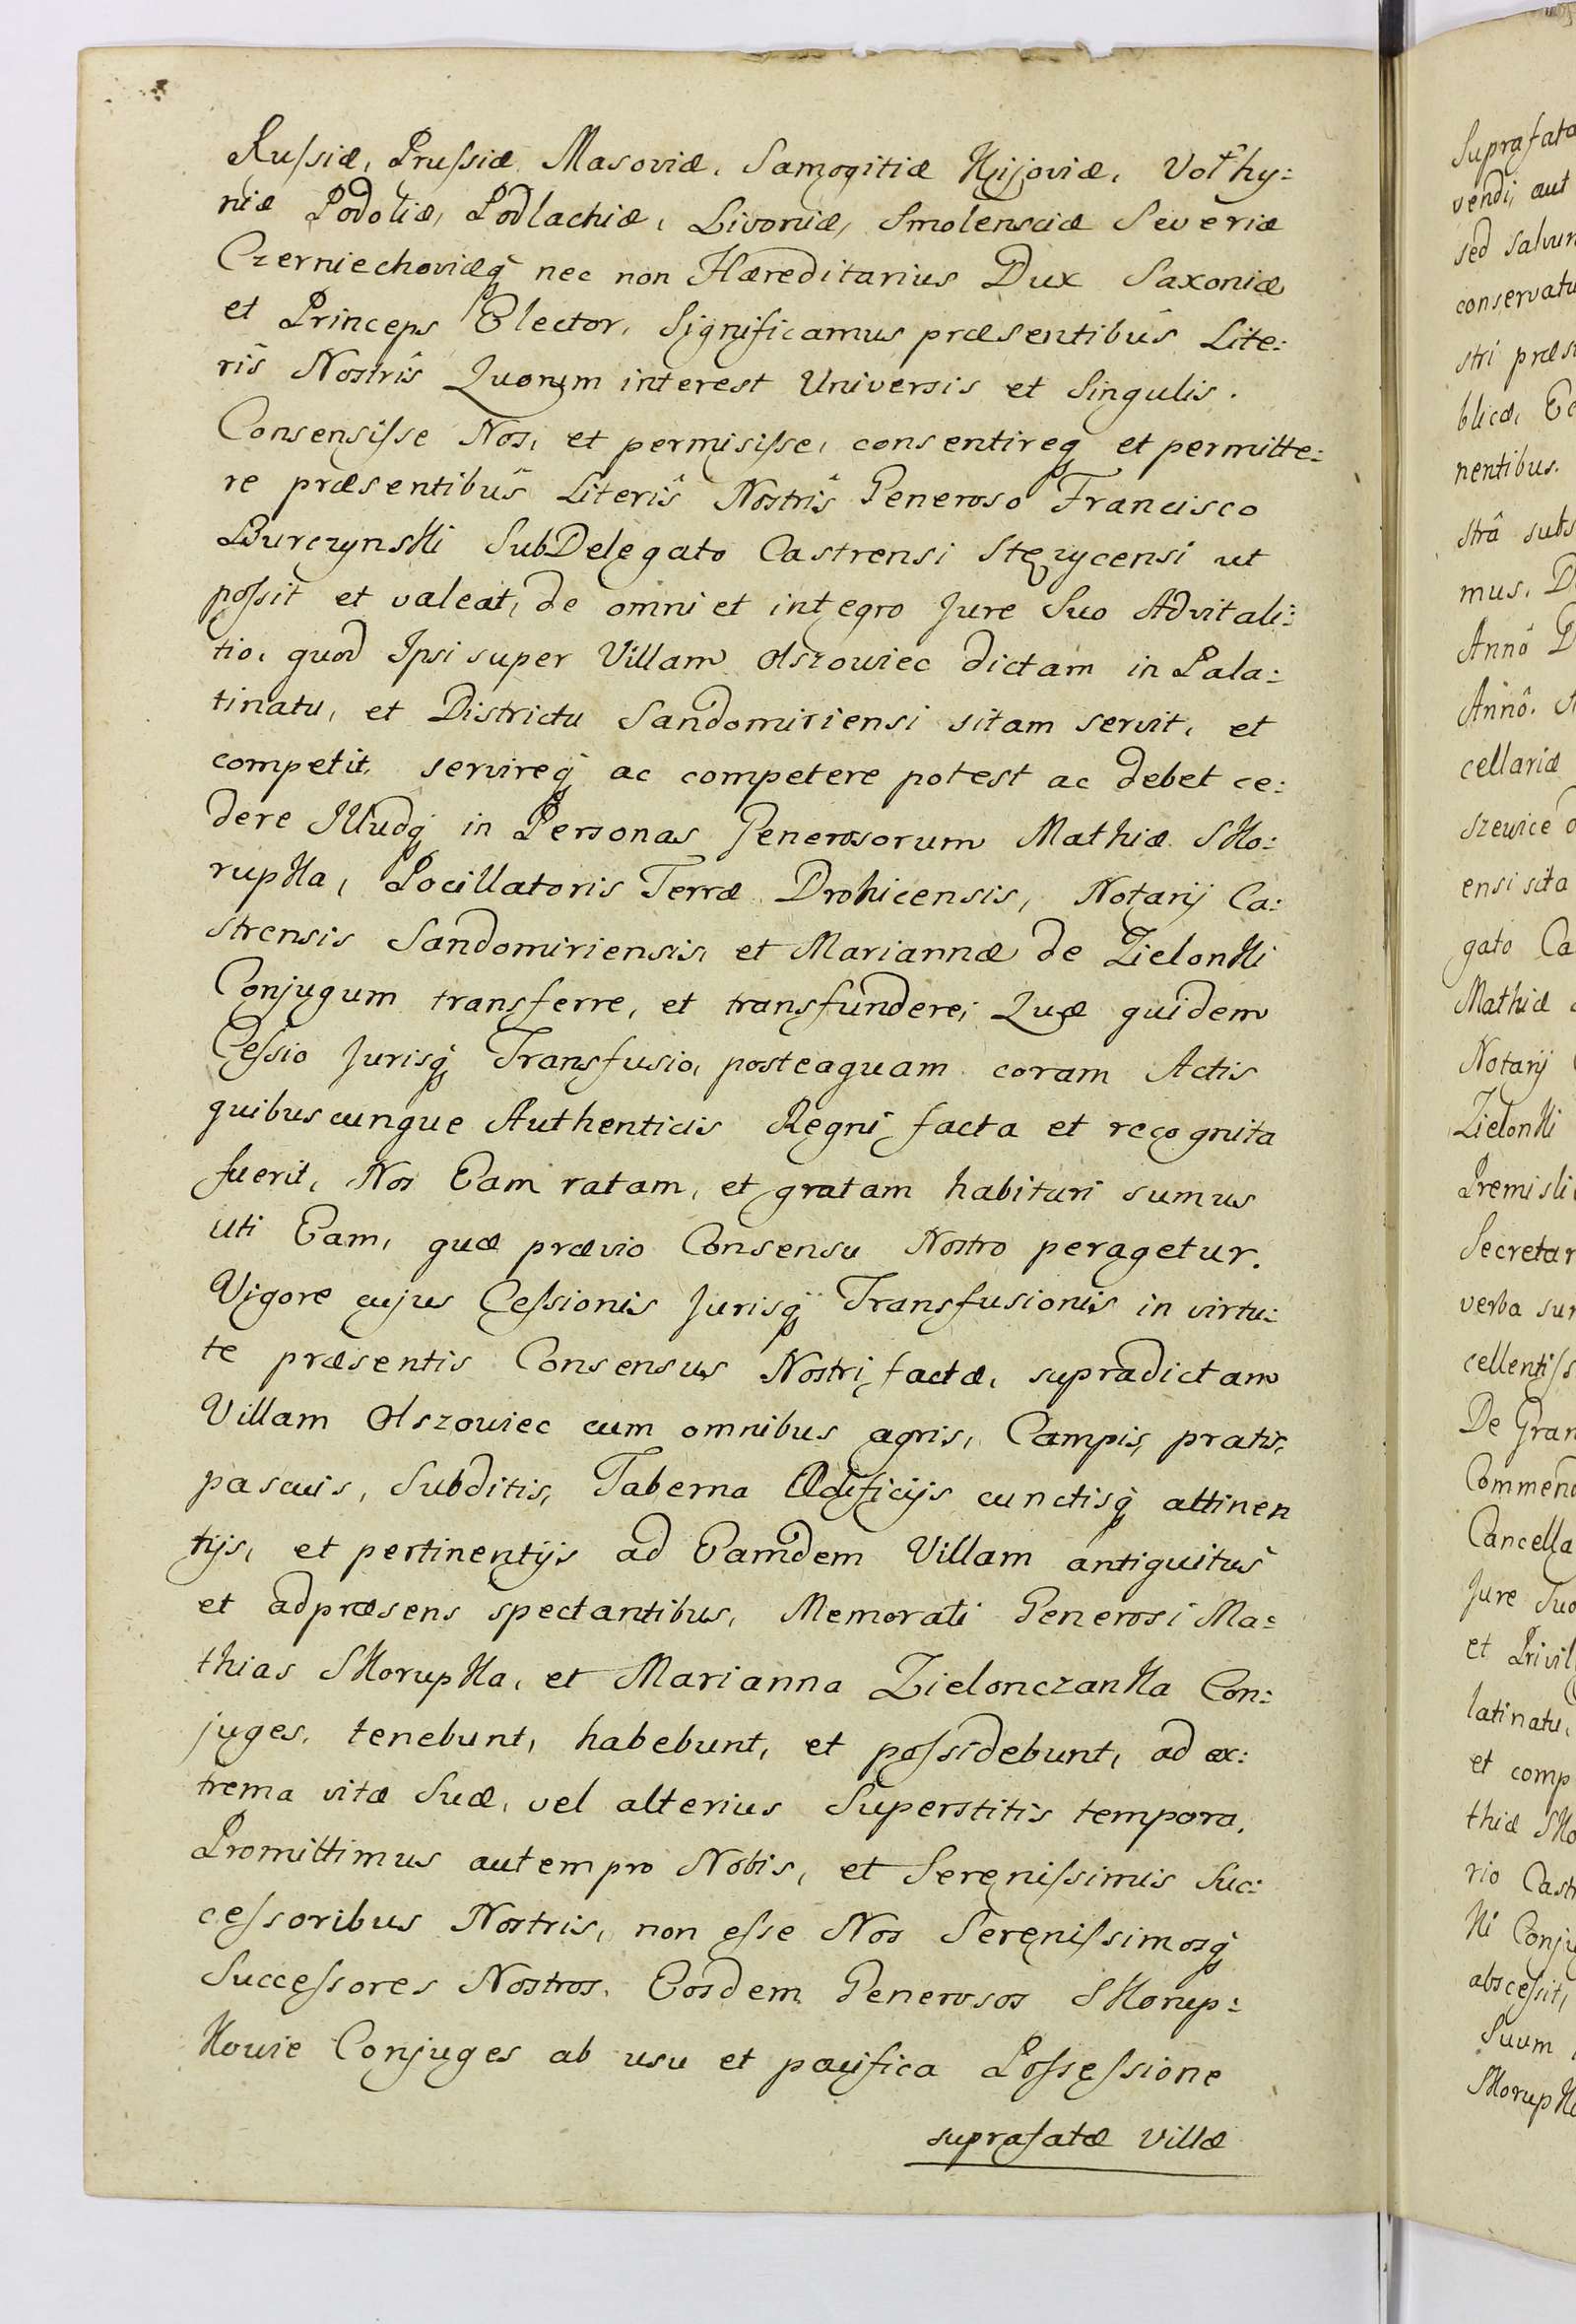 Russiæ, Prussiæ Masoviæ, Samogitiæ Kijoviæ, Volhy:
niæ Podoliæ, Podlachiæ, Livoniæ, Smolensciæ Severiæ
Czerniechoviæq̃ nec non Hæreditarius Dux Saxoniæ
et Princeps Elector, Significamus præsentibûs Lite:
rîs Nostrîs Quorum interest Universis et Singulis.
Consensisse Nos, et permisisse, consentireq̃ et permitte:
re præsentibûs Literîs Nostrîs Generoso Francisco
Burczynski SubDelegato Castrensi Stęzycensi ut
possit et valeat, de omni et integro Jure Suo Advitali:
tio, quod Ipsi super Villam Olszowiec dictam in Pala:
tinatu, et Districtu Sandomiriensi sitam servit, et
competit, servireq̃ ac competere potest ac debet ce:
dere Illudq̃ in Personas Generosorum Mathiæ Sko:
rupka, Pocillatoris Terræ Drohicensis, Notarij Ca:
strensis Sandomiriensis, et Mariannæ de Zielonki
Conjugum transferre, et transfundere; Quæ quidem
Cessio Jurisq̃ Transfusio, posteaquam coram Actis
quibuscunque Authenticis Regni facta et recognita
fuerit, Nos Eam ratam, et gratam habituri sumus
uti Eam, quæ prævio Consensu Nostro peragetur.
Vigore cujus Cessionis Jurisq̃ Transfusionis in virtu:
te præsentis Consensus Nostri factæ, supradictam
Villam Olszowiec cum omnibus agris, Campis, pratis,
pascuis, Subditis, Taberna Ædificijs cunctisq̃ attinen
tijs, et pertinentijs ad Eamdem Villam antiquitûs
et adpræsens spectantibus, Memorati Generosi Ma:
thias Skorupka, et Marianna Zielonczanka Con:
juges, tenebunt, habebunt, et possidebunt, ad ex:
trema vitæ Suæ, vel alterius Superstitis tempora.
Promittimus autem pro Nobis, et Serenissimis Suc:
cessoribus Nostris, non esse Nos Serenissimosq̃
Successores Nostros, Eosdem Generosos Skorup:
kowie Conjuges ab usu et pacifica Possessione
suprafatæ Villæ
Suprafata
vendi, aut
sed salvum
conservatu
stri præs
blicæ, Ec
nentibus.
strâ subs
mus. D
Annô D
Annô.
cellariæ
szewice
ensi sita
gato Ca
Mathiæ
Notarij
Zielonki
Premisli
Secretar
verba su
cellentiss
De Gran
Commend
Cancella
Jure Suo
et Privil
latinatu,
et comp
thiæ Sko
rio Cast
ki Conju
abscessit,
Suum
Skorupk